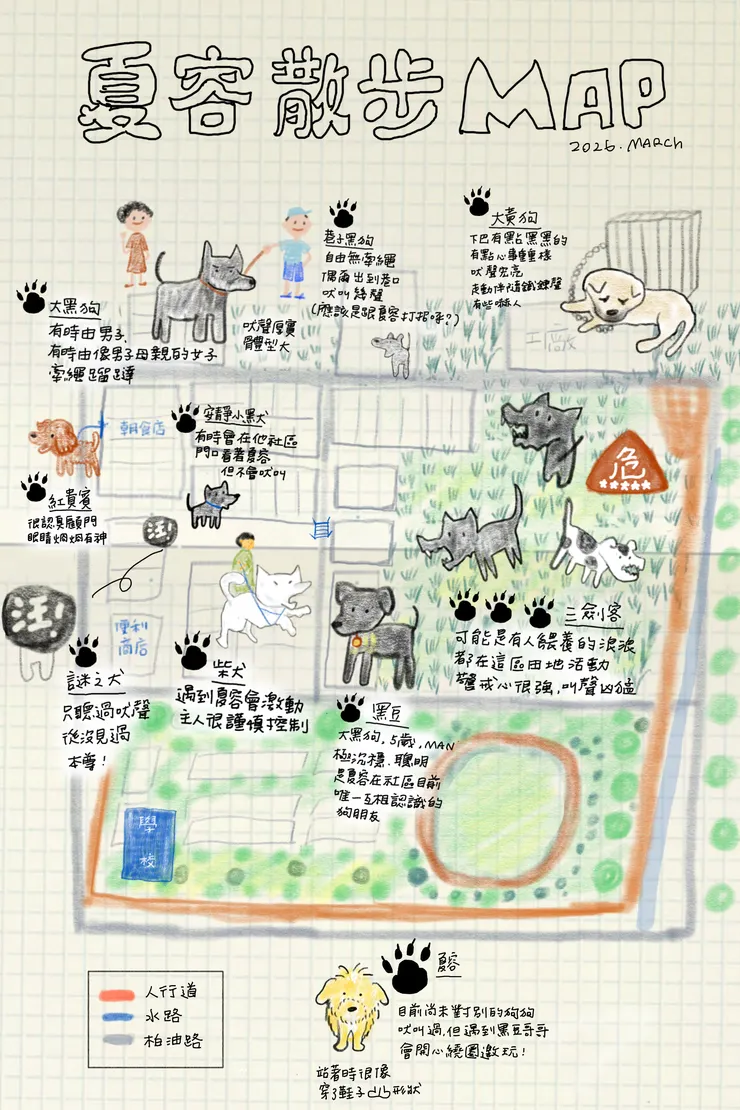 夏容散步MAP
2026.MARCH
大黑狗
有時由男子,
有時由像男子母親的女子
牽繩蹓躂
吠聲厚實
體型大
巷子黑狗
自由無牽繩
偶爾出到巷口
吠叫幾聲
(應該是跟夏容打招呼?)
大黃狗
下巴有點黑黑的
有點心事重重樣
吠聲宏亮
走動伴隨鐵鍊聲
有些嚇人
工廠
朝食店
安靜小黑犬
有時會在他社區
門口看著夏容
但不會吠叫
危
紅貴賓
很認真顧門
眼睛炯炯有神
汪!
汪!
便利
商店
謎之犬
只聽過吠聲
從沒見過
本尊!
柴犬
遇到夏容會激動
主人很謹慎控制
黑豆
大黑狗,5歲,MAN
極沉穩.聰明
是夏容在社區目前
唯一互相認識的
狗朋友
三劍客
可能是有人餵養的浪浪
都在這區田地活動
警戒心很強,叫聲凶猛
學
校
人行道
水路
柏油路
夏容
目前尚未對別的狗狗
吠叫過,但遇到黑豆哥哥
會開心繞圈邀玩!
站著時很像
穿了鞋子凸形狀